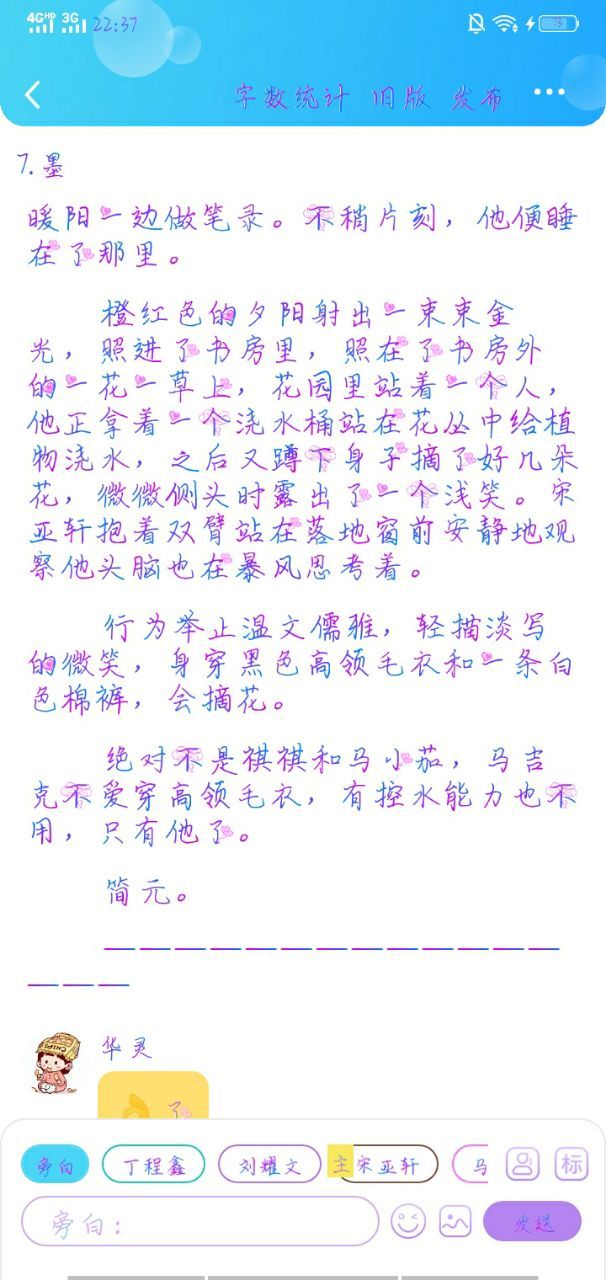 4G HD 3G 22:37 73
字数统计 旧版 发布
7.墨
暖阳一边做笔录。不稍片刻，他便睡
在了那里。
橙红色的夕阳射出一束束金
光，照进了书房里，照在了书房外
的一花一草上，花园里站着一个人，
他正拿着一个浇水桶站在花丛中给植
物浇水，之后又蹲下身子摘了好几朵
花，微微侧头时露出了一个浅笑。宋
亚轩抱着双臂站在落地窗前安静地观
察他头脑也在暴风思考着。
行为举止温文儒雅，轻描淡写
的微笑，身穿黑色高领毛衣和一条白
色棉裤，会摘花。
绝对不是祺祺和马小茄，马吉
克不爱穿高领毛衣，有控水能力也不
用，只有他了。
简元。
—————————————
———
华灵
了
旁白 丁程鑫 刘耀文 主 宋亚轩 马 标
旁白：
发送